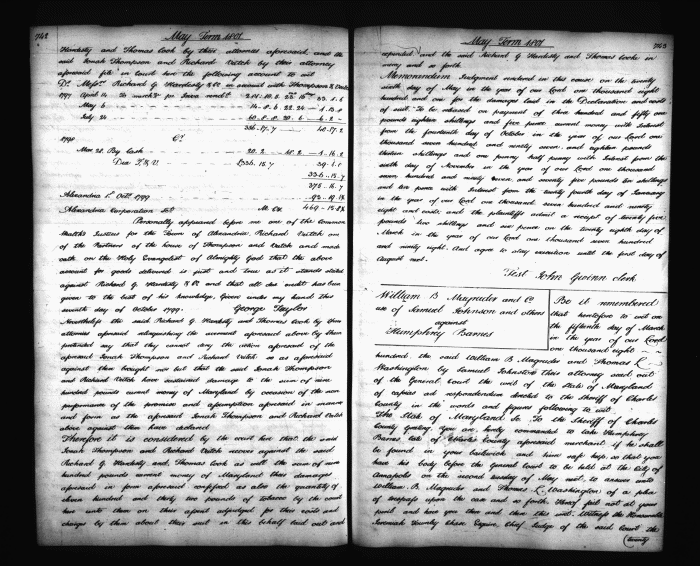 242
May Term 1801
Hardesty and Thomas Cook by their attornies aforesaid, and the
said Jonah Thompson and Richard Veitch by their attorney
aforesaid file in Court here the following account to wit
Dr. Messrs. Richard G Hardesty & Co in account with Thompson & Veitch
1797 April 14 To
May 6
July 24
336..17..7
1798 Cr.
Mar 28 By Cash
336.15.7
Alexandria 1st Octr. 1799
Alexandria Corporation Sct
Personally appeared before me one of the Common
wealth's Justices for the Town of Alexandria Richard Veitch one
of the Partners of the house of Thompson and Veitch and made
oath on the Holy Evangelist of Almighty God that the above
account for goods delivered is just and true as it stands stated
against Richard G. Hardesty & Co and that all due credit has been
given to the best of his knowledge. Given under my hand this
seventh day of October 1799. George Taylor
Nevertheless the said Richard G Hardesty and Thomas Cook by their
attornies aforesaid relinquishing the averment aforesaid above by them
pretended say that they cannot deny the action aforesaid of the
aforesaid Jonah Thompson and Richard Veitch so as aforesaid
against them brought nor but that the said Jonah Thompson
and Richard Veitch have sustained damage to the sum of nine
hundred pounds current money of Maryland by occasion of the non
performance of the promises and assumption aforesaid in manner
and form as the aforesaid Jonah Thompson and Richard Veitch
above against them have declared
Therefore it is considered by the court here that the said
Jonah Thompson and Richard Veitch recover against the said
Richard G. Hardesty and Thomas Cook as well the sum of nine
hundred pounds current money of Maryland their damages
aforesaid in form aforesaid confessed as also the quantity of
seven hundred and thirty two pounds of tobacco by the court
here unto them on their assent adjudged for their costs and
charges by them about their suit in this behalf laid out and
May Term 1801
243
expended and the said Richard G Hardesty and Thomas Cook in
mercy and so forth
Memorandum Judgment rendered in this cause on the twenty
sixth day of May in the year of our Lord one thousand eight
hundred and one for the damages laid in the Declaration and costs
of suit. To be released on payment of three hundred and fifty one
pounds eighteen shillings and five pence current money with Interest
from the fourteenth day of October in the year of our Lord one
thousand seven hundred and ninety seven and eighteen pounds
thirteen shillings and one penny half penny with Interest from the
sixth day of November in the year of our Lord one thousand
seven hundred and ninety seven and seventy five pounds six shillings
and ten pence with Interest from the twenty fourth day of January
in the year of our Lord one thousand seven hundred and ninety
eight and costs and the plaintiffs admit a receipt of twenty five
pounds two shillings and six pence on the twenty eighth day of
March in the year of our Lord one thousand seven hundred
and ninety eight. And agree to stay execution until the first day of
August next.
Test John Gwinn Clerk
William B Magruder and Co
use of Samuel Johnson and others
against
Humphrey Barnes
Be it remembered
that heretofore to wit on
the fifteenth day of March
in the year of our Lord
one thousand eight
hundred the said William B Magruder and Thomas L
Washington by Samuel Johnston their attorney sued out
of the General Court the writ of the State of Maryland
of capias ad respondendum directed to the Sheriff of Charles
County in the words and figures following to wit
The State of Maryland Sc. To the Sheriff of Charles
County Greeting. You are hereby commanded to take Humphrey
Barnes late of Charles County aforesaid merchant if he shall
be found in your bailiwick and him safe keep so that you
have his body before the General Court to be held at the City of
Annapolis on the second tuesday of May next, to answer unto
William B. Magruder and Thomas L. Washington of a plea
of trespass upon the case and so forth. Hereof fail not at your
peril and have you then and there this writ. Witness the Honourable
Jeremiah Townley Chase Esquire Chief Judge of the said Court the
twenty